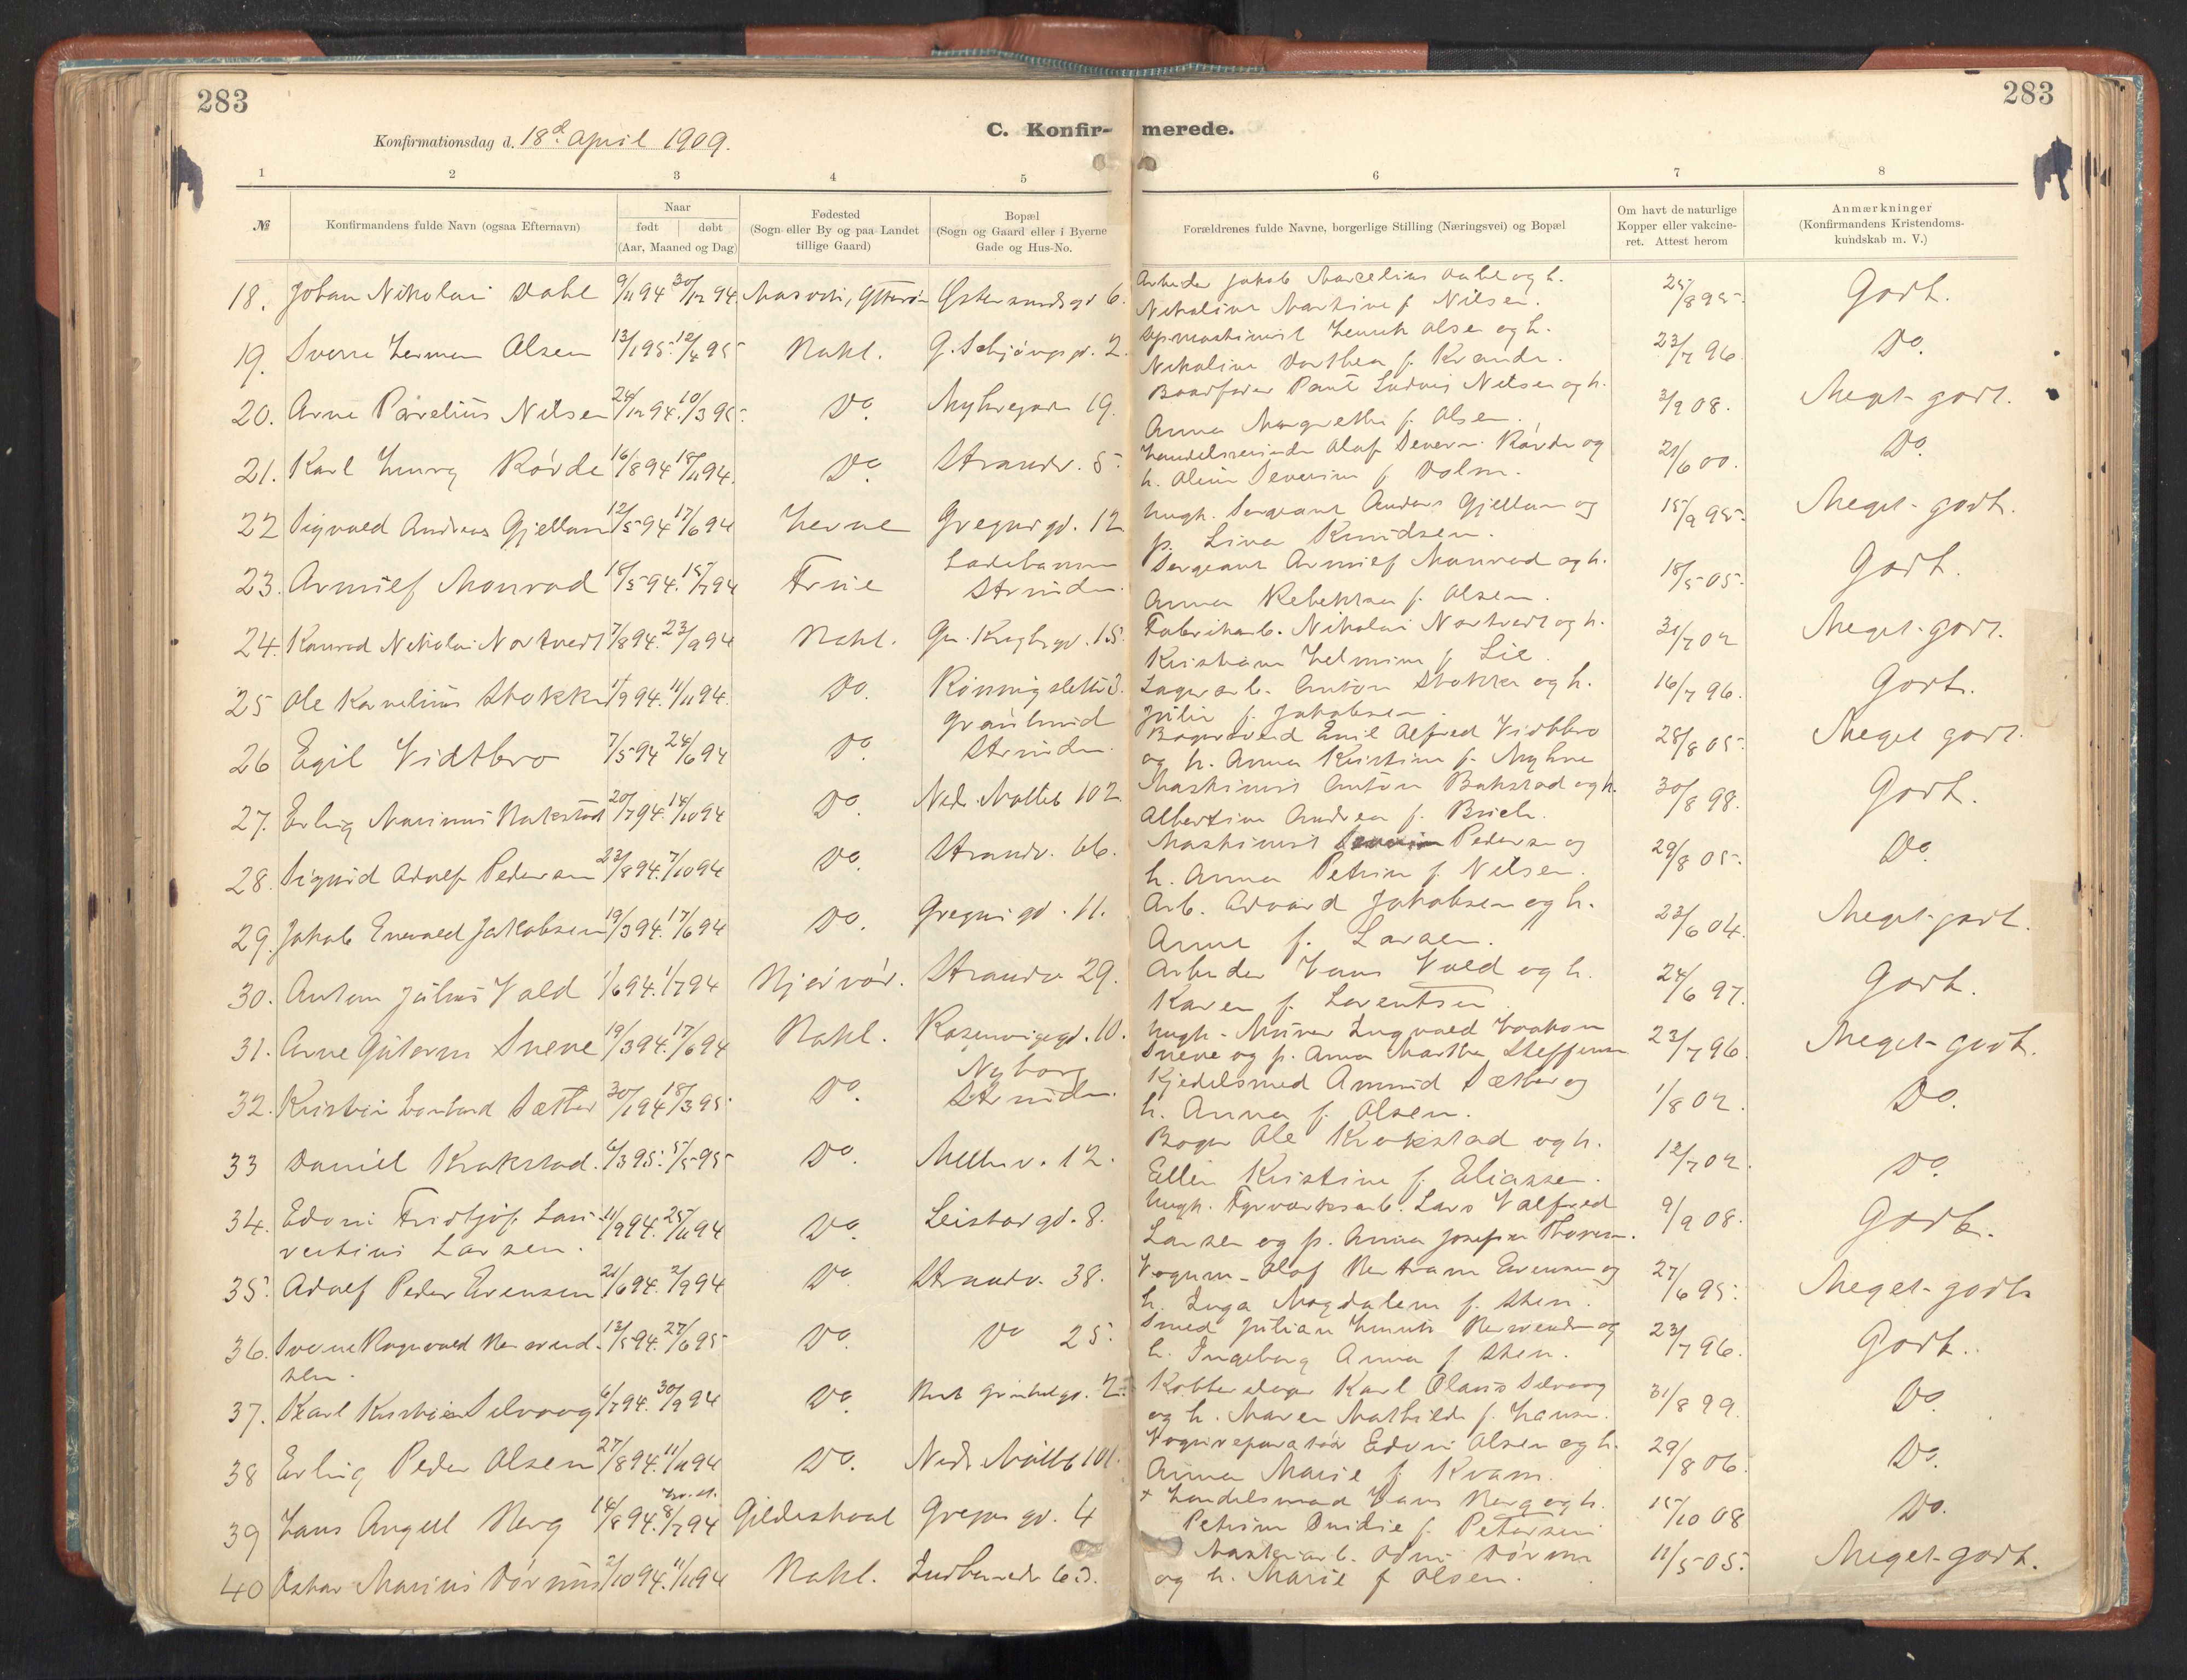 283
283
Konfirmationsdag d. 18d April 1909.
C. Konfir- merede.
1 2 3 4 5 6 7 8
№
Konfirmandens fulde Navn (ogsaa Efternavn)
Naar
født døbt
(Aar, Maaned og Dag)
Fødested
(Sogn eller By og paa Landet
tillige Gaard)
Bopæl
(Sogn og Gaard eller i Byerne
Gade og Hus-No.
Forældrenes fulde Navne, borgerlige Stilling (Næringsvei) og Bopæl
Om havt de naturlige
Kopper eller vakcine-
ret. Attest herom
Anmærkninger
(Konfirmandens Kristendoms-
kundskab m. V.)
18. Johan Nikolai Dahl 9/11 94 30/12 94. 6. Arbeider Jakob Marcelius Dahl og h. 25/8 95. Godt.
Nikoline Martine f. Nilsen.
19. Sverre Herman Olsen 13/1 95. 12/4 95 Bakl. 2. Henrik Olsen og h. 23/7 96. Do.
Nikoline Dorthea f.
20. Arne Parelius Nilsen 24/12 94. 10/3 95. Do. 19. Baadfører Paul Ludvig Nilsen og h. 3/9 08. Meget godt.
Anna Margrethe f. Olsen.
21. Karl Henry Rövde 16/8 94 18/11 94. Do. Strandv. 5. Olaf Severin Rövde og 21/6 00. Do.
h. Oline Severine f. Volm.
22 Sigvald Andreas Gjellan 12/5 94 17/6 94 Hevne Gregusgd. 12 Ungk. Sergeant Anders Gjellan og 15/9 95. Meget godt.
p. Lina Knudsen.
23. Arnulf Monrad 18/5 94. 15/7 94 Frue Ladehammeren Strinden. Sergeant Arnulf Monrad og h. 18/5 05. Godt.
Anna Rebekka f. Olsen.
24. Konrad Nikolai Nortvedt 7/8 94. 23/9 94 Bakl. 15. Fabrikarb. Nikolai Nortvedt og h. 31/7 02 Meget godt.
Kristiane Helmine f. Lie.
25 Ole Kornelius Stokke 1/9 94. 11/11 94. Do. Rönningsletta 3. Lagerarb. Anton Stokke og h. 16/7 96. Godt.
Julie f. Jakobsen.
26 Egil Vidtbro 7/5 94 24/6 94 Do. Granlund Strinden. Emil Alfred Vidtbro 28/8 05. Meget godt.
og h. Anna Kristine f. Myhre
27. Erling Marinus Bakstad 20/7 94. 14/10 94 Do. Nedr. Mölleb 102. Maskinist Anton Bakstad og h. 30/8 98. Godt.
Albertine Andrea f. Brich.
28. Sigurd Adolf Pedersen 23/8 94. 7/10 94 Do. Strandv. 66. Maskinist Severin Pedersen og 29/8 05. Do
h. Anna Petrine f. Nilsen.
29. Jakob Enevald Jakobsen 19/3 94. 17/6 94 Do. Gregusgd. 11. Arb. Edvard Jakobsen og h. 23/6 04. Meget godt.
Anne f. Larsen.
30. Anton Julius Vold 1/6 94. 1/7 94 Strandv 29. Arbeider Hans Vold og h. 24/6 97. Godt.
Karen f. Lorentsen.
31. Arne Guttorm Sneve 19/3 94. 17/6 94 Bakl. Rosenvinged. 10. Ungk. Murer Ingvald Haakon 23/7 96. Meget godt.
Sneve og p. Anna Martha Steffensen
32. Kristian Sæther 30/1 94 18/3 95. Do. Nyborg Strinden. Kjedelsmed Amund Sæther og 1/8 02. Do.
h. Anna f. Olsen.
33 Daniel Krokstad. 6/3 95. 5/5 95 Do. Mellemv. 12. Ole Krokstad og h. 12/7 02. Do.
Ellen Kristine f. Eliassen.
34. Edvin Fridtjof Lau- 11/9 94. 25/11 94 Do. Leistadgd. 8. Ungk. Fyrværksarb. Lars Valfred 9/9 08. Godt.
rentius Larsen. Larsen og p. Anna Josefine Thoresen.
35. Adolf Peder Evensen 21/6 94. 2/9 94 Do. Strandv. 38. Vognm. Olaf Bertram Evensen og 27/6 95. Meget godt
h. Inga Magdalene f. Sten.
36. Sverre Ragnvald Berwend- 13/5 94. 27/6 95 Do. Do 25. Smed Julian Henrik Berwendsen og 23/7 96. Godt.
sen. h. Ingeborg Anna f. Sten.
37. Karl Kristian Selvaag 6/7 94. 30/9 94 Do. 2. Kobberslager Karl Olaus Selvaag 31/8 99. Do
og h. Maren Mathilde f. Hansen.
38 Erling Peder Olsen 27/8 94. 11/11 94 Do. Nedr. Mölleb 101. Vognreparatör Edvin Olsen og h. 29/8 06. Do.
Anna Marie f. Kvam.
39 Hans Angell Berg 14/8 94. 8/7 94 Gildeskaal Gregusgd. 4 + Handelsmand Hans Berg og h. 15/10 08 Do.
Petrine f. Petersen
40 Oskar Marius 2/10 94. 11/11 94 Bakl. Innherredsv 63. 11/5 05. Meget godt.
og h. Marie f Olsen.